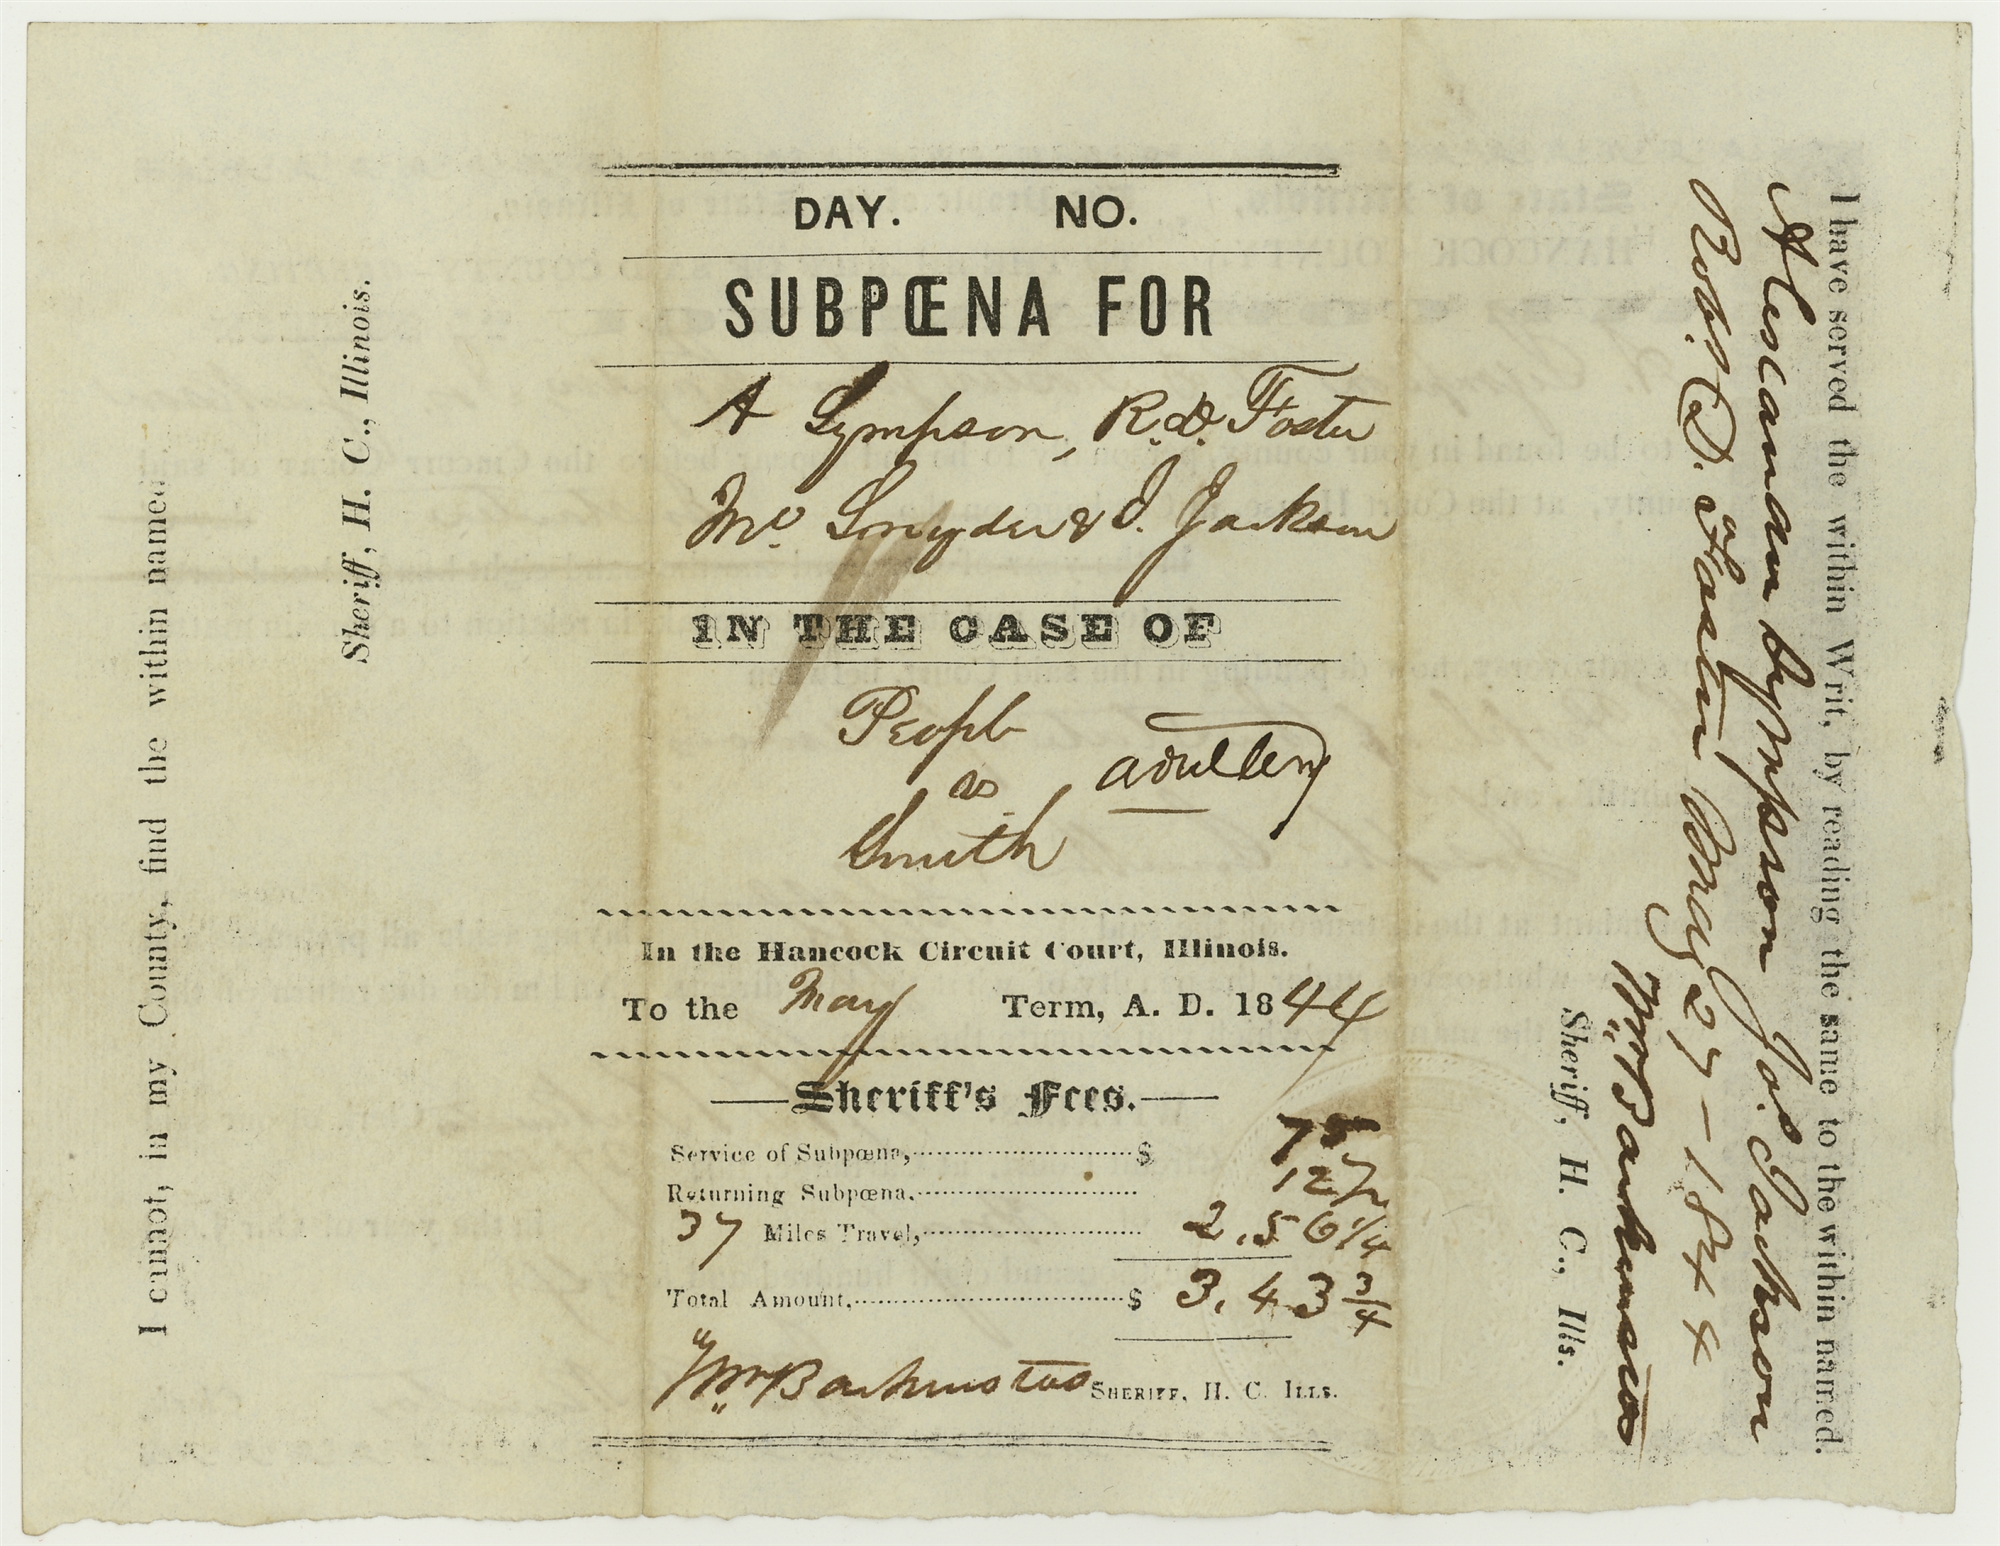 DAY. NO.
SUBPŒNA FOR
A Sympson, R. D. Foster
Mc. Snyder & J. Jackson
IN THE CASE OF
People
vs adultery
Smith
In the Hancock Circuit Court, Illinois.
To the May Term, A. D. 1844
Sheriff's Fees.
Service of Subpœna, $ 75
Returning Subpœna, 12½
37 Miles Travel, 2.56¼
Total Amount, $ 3.43¾
Wm Backenstos SHERIFF, H. C. ILLS.
I have served the within Writ, by reading the same to the within named.
Alexandan Sympson Jo. Jackson
Robt. D. Foster May 27 – 1844
Wm Backenstos
Sheriff, H. C., Ills.
I cannot, in my County, find the within named
Sheriff, H. C., Illinois.